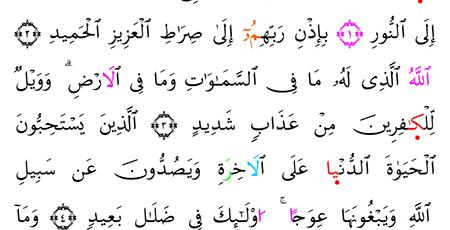 إِلَى النُّورِ ﴿١﴾ بِإِذْنِ رَبِّهِمُۥٓ إِلَىٰ صِرَاطِ الْعَزِيزِ الْحَمِيدِ ﴿٢﴾
اللَّهُ الَّذِى لَهُۥ مَا فِى السَّمَـٰوَٰتِ وَمَا فِى الَارْضِ ۗ وَوَيْلٌ
لِّلْكَـٰفِرِينَ مِنْ عَذَابٍ شَدِيدٍ ﴿٣﴾ الَّذِينَ يَسْتَحِبُّونَ
الْحَيَوٰةَ الدُّنْيا عَلَى الَاخِرَةِ وَيَصُدُّونَ عَن سَبِيلِ
اللَّهِ وَيَبْغُونَهَا عِوَجًا ۚ اوْلَـٰٓئِكَ فِى ضَلَـٰلٍ بَعِيدٍ ﴿٤﴾ وَمَآ